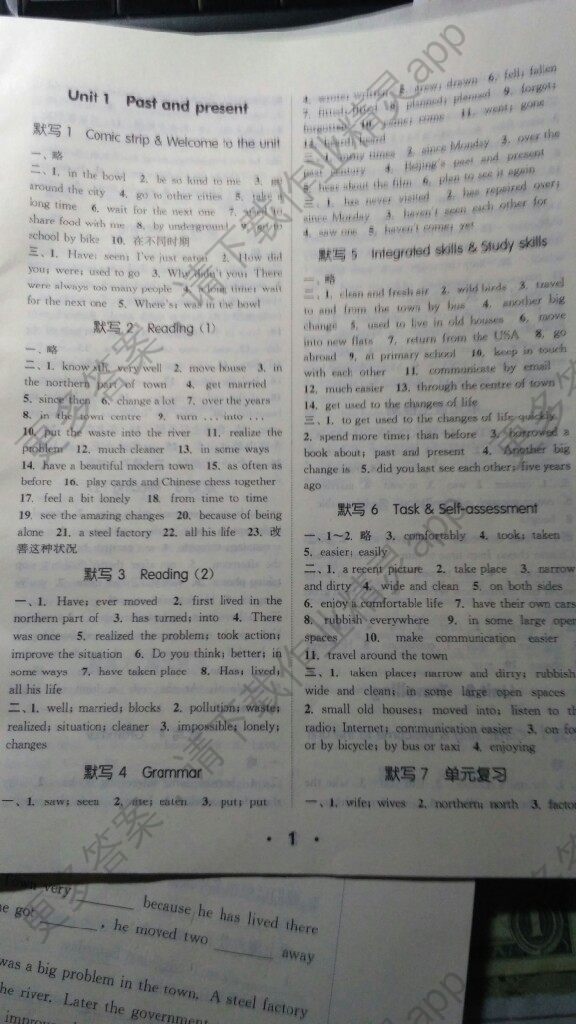 Unit 1 Past and present
默写 1 Comic strip & Welcome to the unit
一、略
二、1. in the bowl 2. be so kind to me 3.
around the city 4. go to other cities 5.
long time 6. wait for the next one 7.
share food with me 8. by underground 9. go to
school by bike 10. 在不同时期
三、1. Have; seen; I've just eaten 2. How did
you; were; used to go 3. Why didn't you; There
were always too many people 4. long time; wait
for the next one 5. Where's; was in the bowl
默写 2 Reading (1)
一、略
二、1. know sth. very well 2. move house 3. in
the northern part of town 4. get married
5. since then 6. change a lot 7. over the years
8. in the town centre 9. turn … into …
10. put the waste into the river 11. realize the
problem 12. much cleaner 13. in some ways
14. have a beautiful modern town 15. as often as
before 16. play cards and Chinese chess together
17. feel a bit lonely 18. from time to time
19. see the amazing changes 20. because of being
alone 21. a steel factory 22. all his life 23. 改
善这种状况
默写 3 Reading (2)
一、1. Have; ever moved 2. first lived in the
northern part of 3. has turned; into 4. There
was once 5. realized the problem; took action;
improve the situation 6. Do you think; better; in
some ways 7. have taken place 8. Has; lived;
all his life
二、1. well; married; blocks 2. pollution; waste;
realized; situation; cleaner 3. impossible; lonely;
changes
默写 4 Grammar
一、1. saw; seen 2. ate; eaten 3. put; put
4. wrote; written 5. drew; drawn 6. fell; fallen
7. fitted; fitted 8. planned; planned 9. forgot;
forgotten 10. came; come 11. went; gone
12. heard; heard
many times 2. since Monday 3. over the
past century 4. Beijing's past and present
5. hear about the film 6. plan to see it again
三、1. has never visited 2. has repaired over;
since Monday 3. haven't seen each other for
4. saw one 5. haven't come; yet
默写 5 Integrated skills & Study skills
一、略
二、1. clean and fresh air 2. wild birds 3. travel
to and from the town by bus 4. another big
change 5. used to live in old houses 6. move
into new flats 7. return from the USA 8. go
abroad 9. at primary school 10. keep in touch
with each other 11. communicate by email
12. much easier 13. through the centre of town
14. get used to the changes of life
三、1. to get used to the changes of life quickly
2. spend more time; than before 3. borrowed a
book about; past and present 4. Another big
change is 5. did you last see each other; five years
ago
默写 6 Task & Self-assessment
一、1~2. 略 3. comfortably 4. took; taken
5. easier; easily
二、1. a recent picture 2. take place 3. narrow
and dirty 4. wide and clean 5. on both sides
6. enjoy a comfortable life 7. have their own cars
8. rubbish everywhere 9. in some large open
spaces 10. make communication easier
11. travel around the town
三、1. taken place; narrow and dirty; rubbish;
wide and clean; in some large open spaces
2. small old houses; moved into; listen to the
radio; Internet; communication easier 3. on foot
or by bicycle; by bus or taxi 4. enjoying
默写 7 单元复习
一、1. wife; wives 2. northern; north 3.
• 1 •
very ______ because he has lived there
he got ______, he moved two ______ away
was a big problem in the town. A steel factory
the river. Later the government
更多答案,请下载作业精灵.app